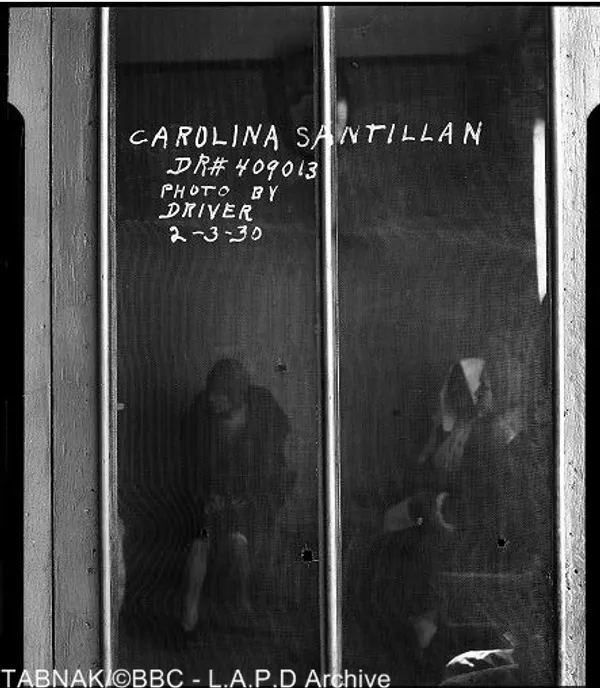 CAROLINA SANTILLAN
DR# 409013
PHOTO BY
DRIVER
2-3-30
TABNAK/©BBC - L.A.P.D Archive